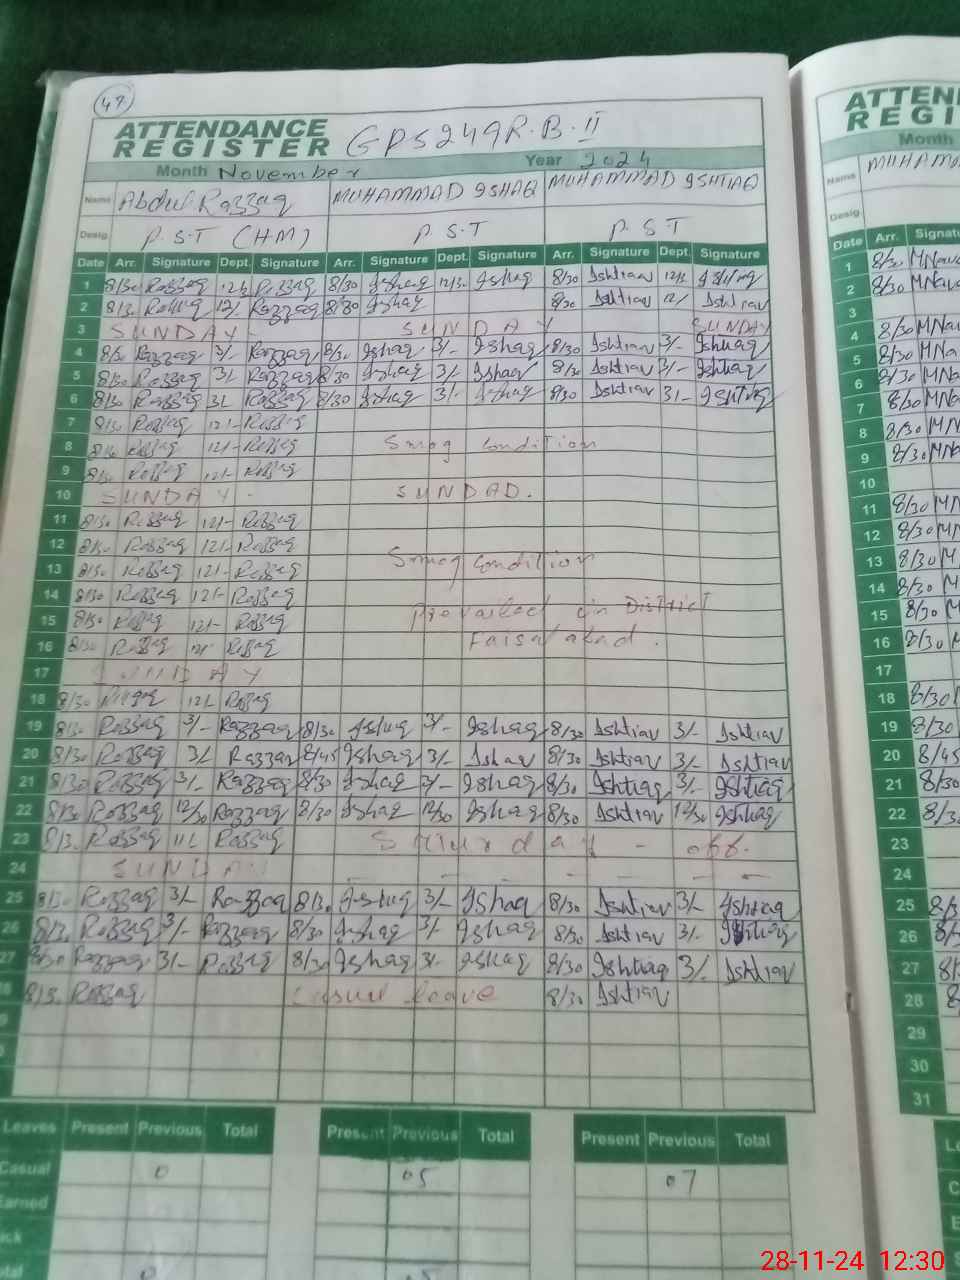 47
ATTENDANCE
REGISTER GPS 249 R.B-II
Month November Year 2024
Name Abdul Razzaq MUHAMMAD ISHAQ MUHAMMAD ISHTIAQ
Desig. P.S.T (HM) P.S.T P.S.T
Date Arr. Signature Dept. Signature Arr. Signature Dept. Signature Arr. Signature Dept. Signature
1 8/30 Razzaq Razzaq 8/30 Ishaq 12/30 Ishaq 8/30 Ishtiaq Ishtiaq
2 8/30 Razzaq 12/- Razzaq 8/30 Ishaq 8/30 Ishtiaq 12/ Ishtiaq
3 SUNDAY SUNDAY SUNDAY
4 8/30 Razzaq 3/- Razzaq 8/30 Ishaq 3/- Ishaq 8/30 Ishtiaq 3/- Ishtiaq
5 8/30 Razzaq 3/ Razzaq 8/30 Ishaq 3/ Ishaq 8/30 Ishtiaq 3/- Ishtiaq
6 8/30 Razzaq 3/ Razzaq 8/30 Ishaq 3/- Ishaq 8/30 Ishtiaq 3/- Ishtiaq
7 8/30 Razzaq 12/- Razzaq
8 8/30 Razzaq 12/- Razzaq Smog Condition
9 8/30 Razzaq 12/- Razzaq
10 SUNDAY - SUNDAD.
11 8/30 Razzaq 12/- Razzaq
12 8/30 Razzaq 12/- Razzaq
13 8/30 Razzaq 12/- Razzaq Smog Condition
14 8/30 Razzaq 12/- Razzaq
15 8/30 Razzaq 12/- Razzaq prevailed in District
16 8/30 Razzaq 12/- Razzaq Faisalabad.
17 SUNDAY
18 8/30 Razzaq 12/- Razzaq
19 8/30 Razzaq 3/- Razzaq 8/30 Ishaq 3/- Ishaq 8/30 Ishtiaq 3/- Ishtiaq
20 8/30 Razzaq 3/ Razzaq 8/45 Ishaq 3/- Ishaq 8/30 Ishtiaq 3/- Ishtiaq
21 8/30 Razzaq 3/- Razzaq 8/30 Ishaq 3/- Ishaq 8/30 Ishtiaq 3/- Ishtiaq
22 8/30 Razzaq 12/30 Razzaq 8/30 Ishaq 12/30 Ishaq 8/30 Ishtiaq 12/30 Ishtiaq
23 8/30 Razzaq Razzaq Saturday - off.
24 SUNDAY - - - - - -
25 8/30 Razzaq 3/- Razzaq 8/30 Ishaq 3/- Ishaq 8/30 Ishtiaq 3/- Ishtiaq
26 8/30 Razzaq 3/- Razzaq 8/30 Ishaq 3/ Ishaq 8/30 Ishtiaq 3/- Ishtiaq
27 8/30 Razzaq 3/- Razzaq 8/30 Ishaq 3/- Ishaq 8/30 Ishtiaq 3/- Ishtiaq
8/30 Razzaq Casual leave 8/30 Ishtiaq
Leaves Present Previous Total Present Previous Total Present Previous Total
Casual 0 05 07
Earned
ATTEN
REGI
Month
Name MUHAMMA
Desig.
Date Arr. Signatu
1 8/30 MNawa
2 8/30 MNawa
3
4 8/30 MNawa
5 8/30 MNa
6 8/30 MNa
7 8/30 MNa
8 8/30 MNa
9 8/30 MNa
10
11 8/30 MN
12 8/30 MN
13 8/30 M
14 8/30 M
15 8/30 M
16 8/30 M
17
18 8/30
19 8/30
20 8/45
21 8/30
22 8/30
23
24
25 8/3
26 8/
27 8/
28 8
29
30
31
28-11-24 12:30